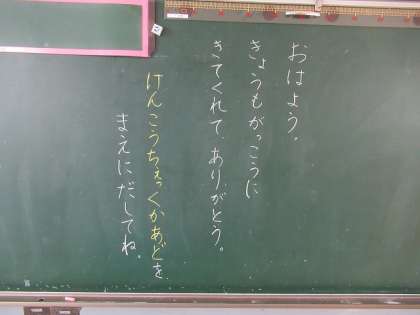 おはよう。
きょうもがっこうに
きてくれて、ありがとう。
けんこうちぇっくかあどを
まえにだしてね。